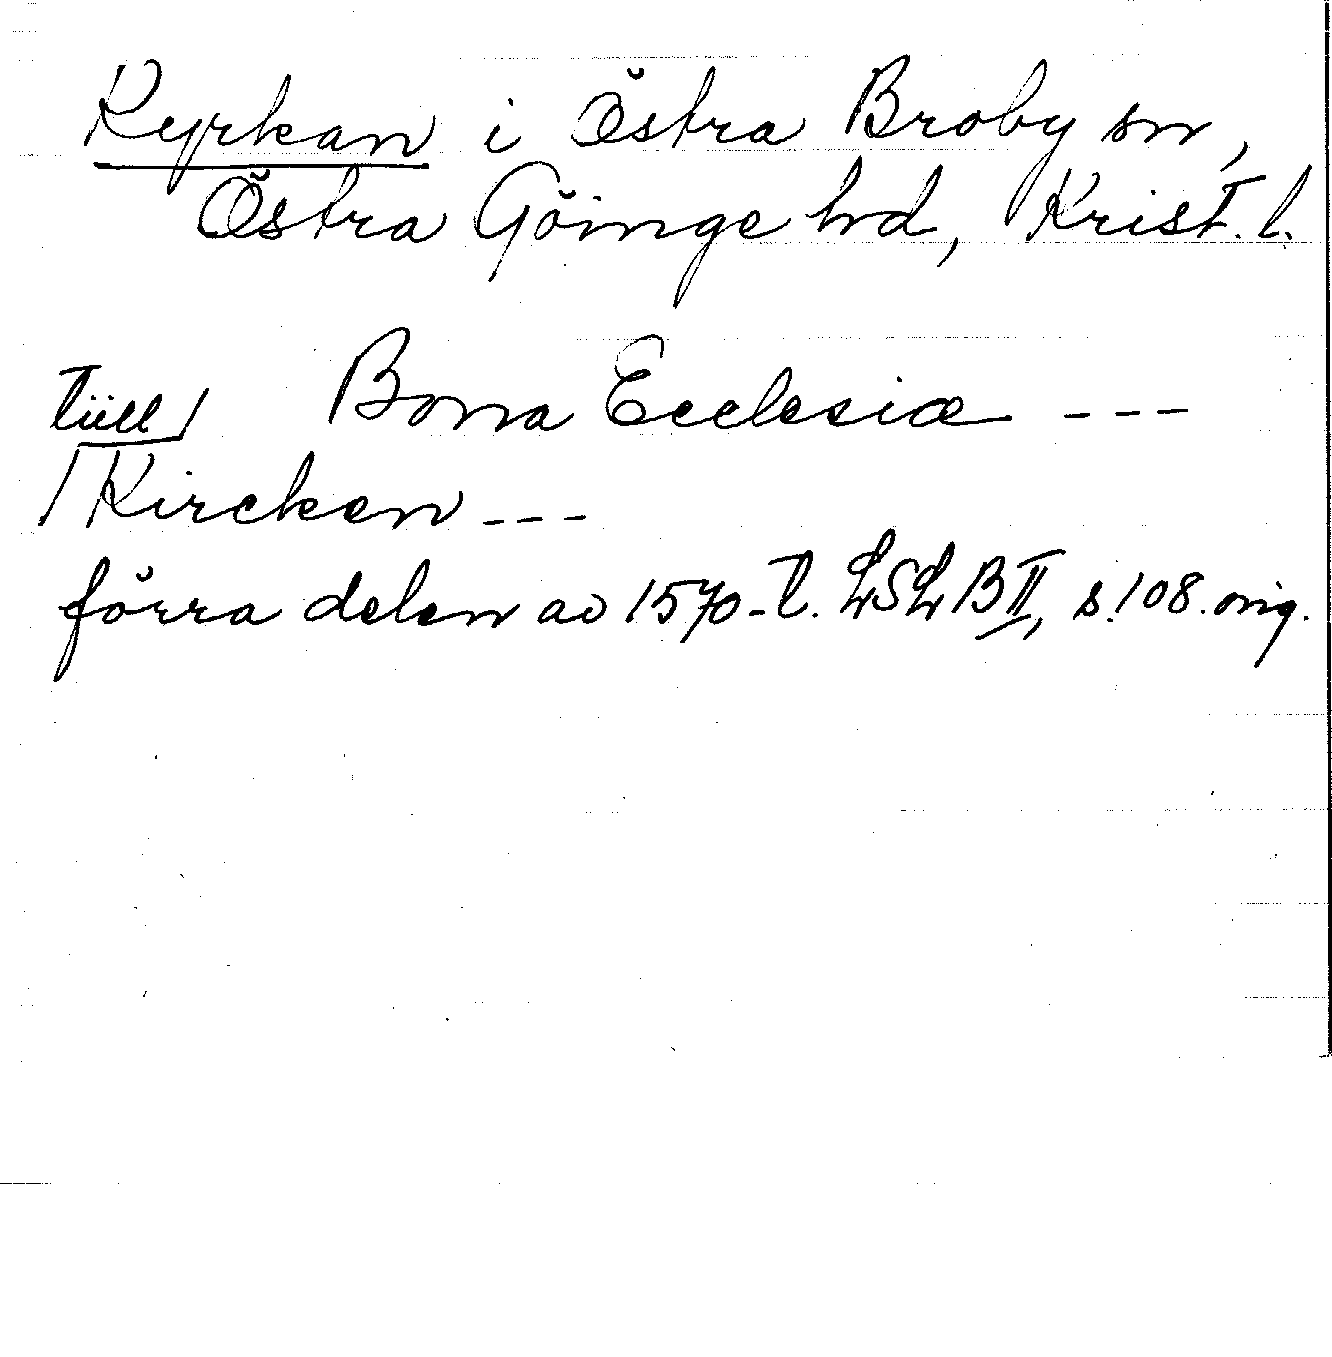 Kyrkan i Östra Broby sn,
Östra Göinge hd, Krist. l.
Bona Ecclesiæ ---
tiill
Kircken ---
förra delen av 1570-t. LSL BII, s. 108. orig.